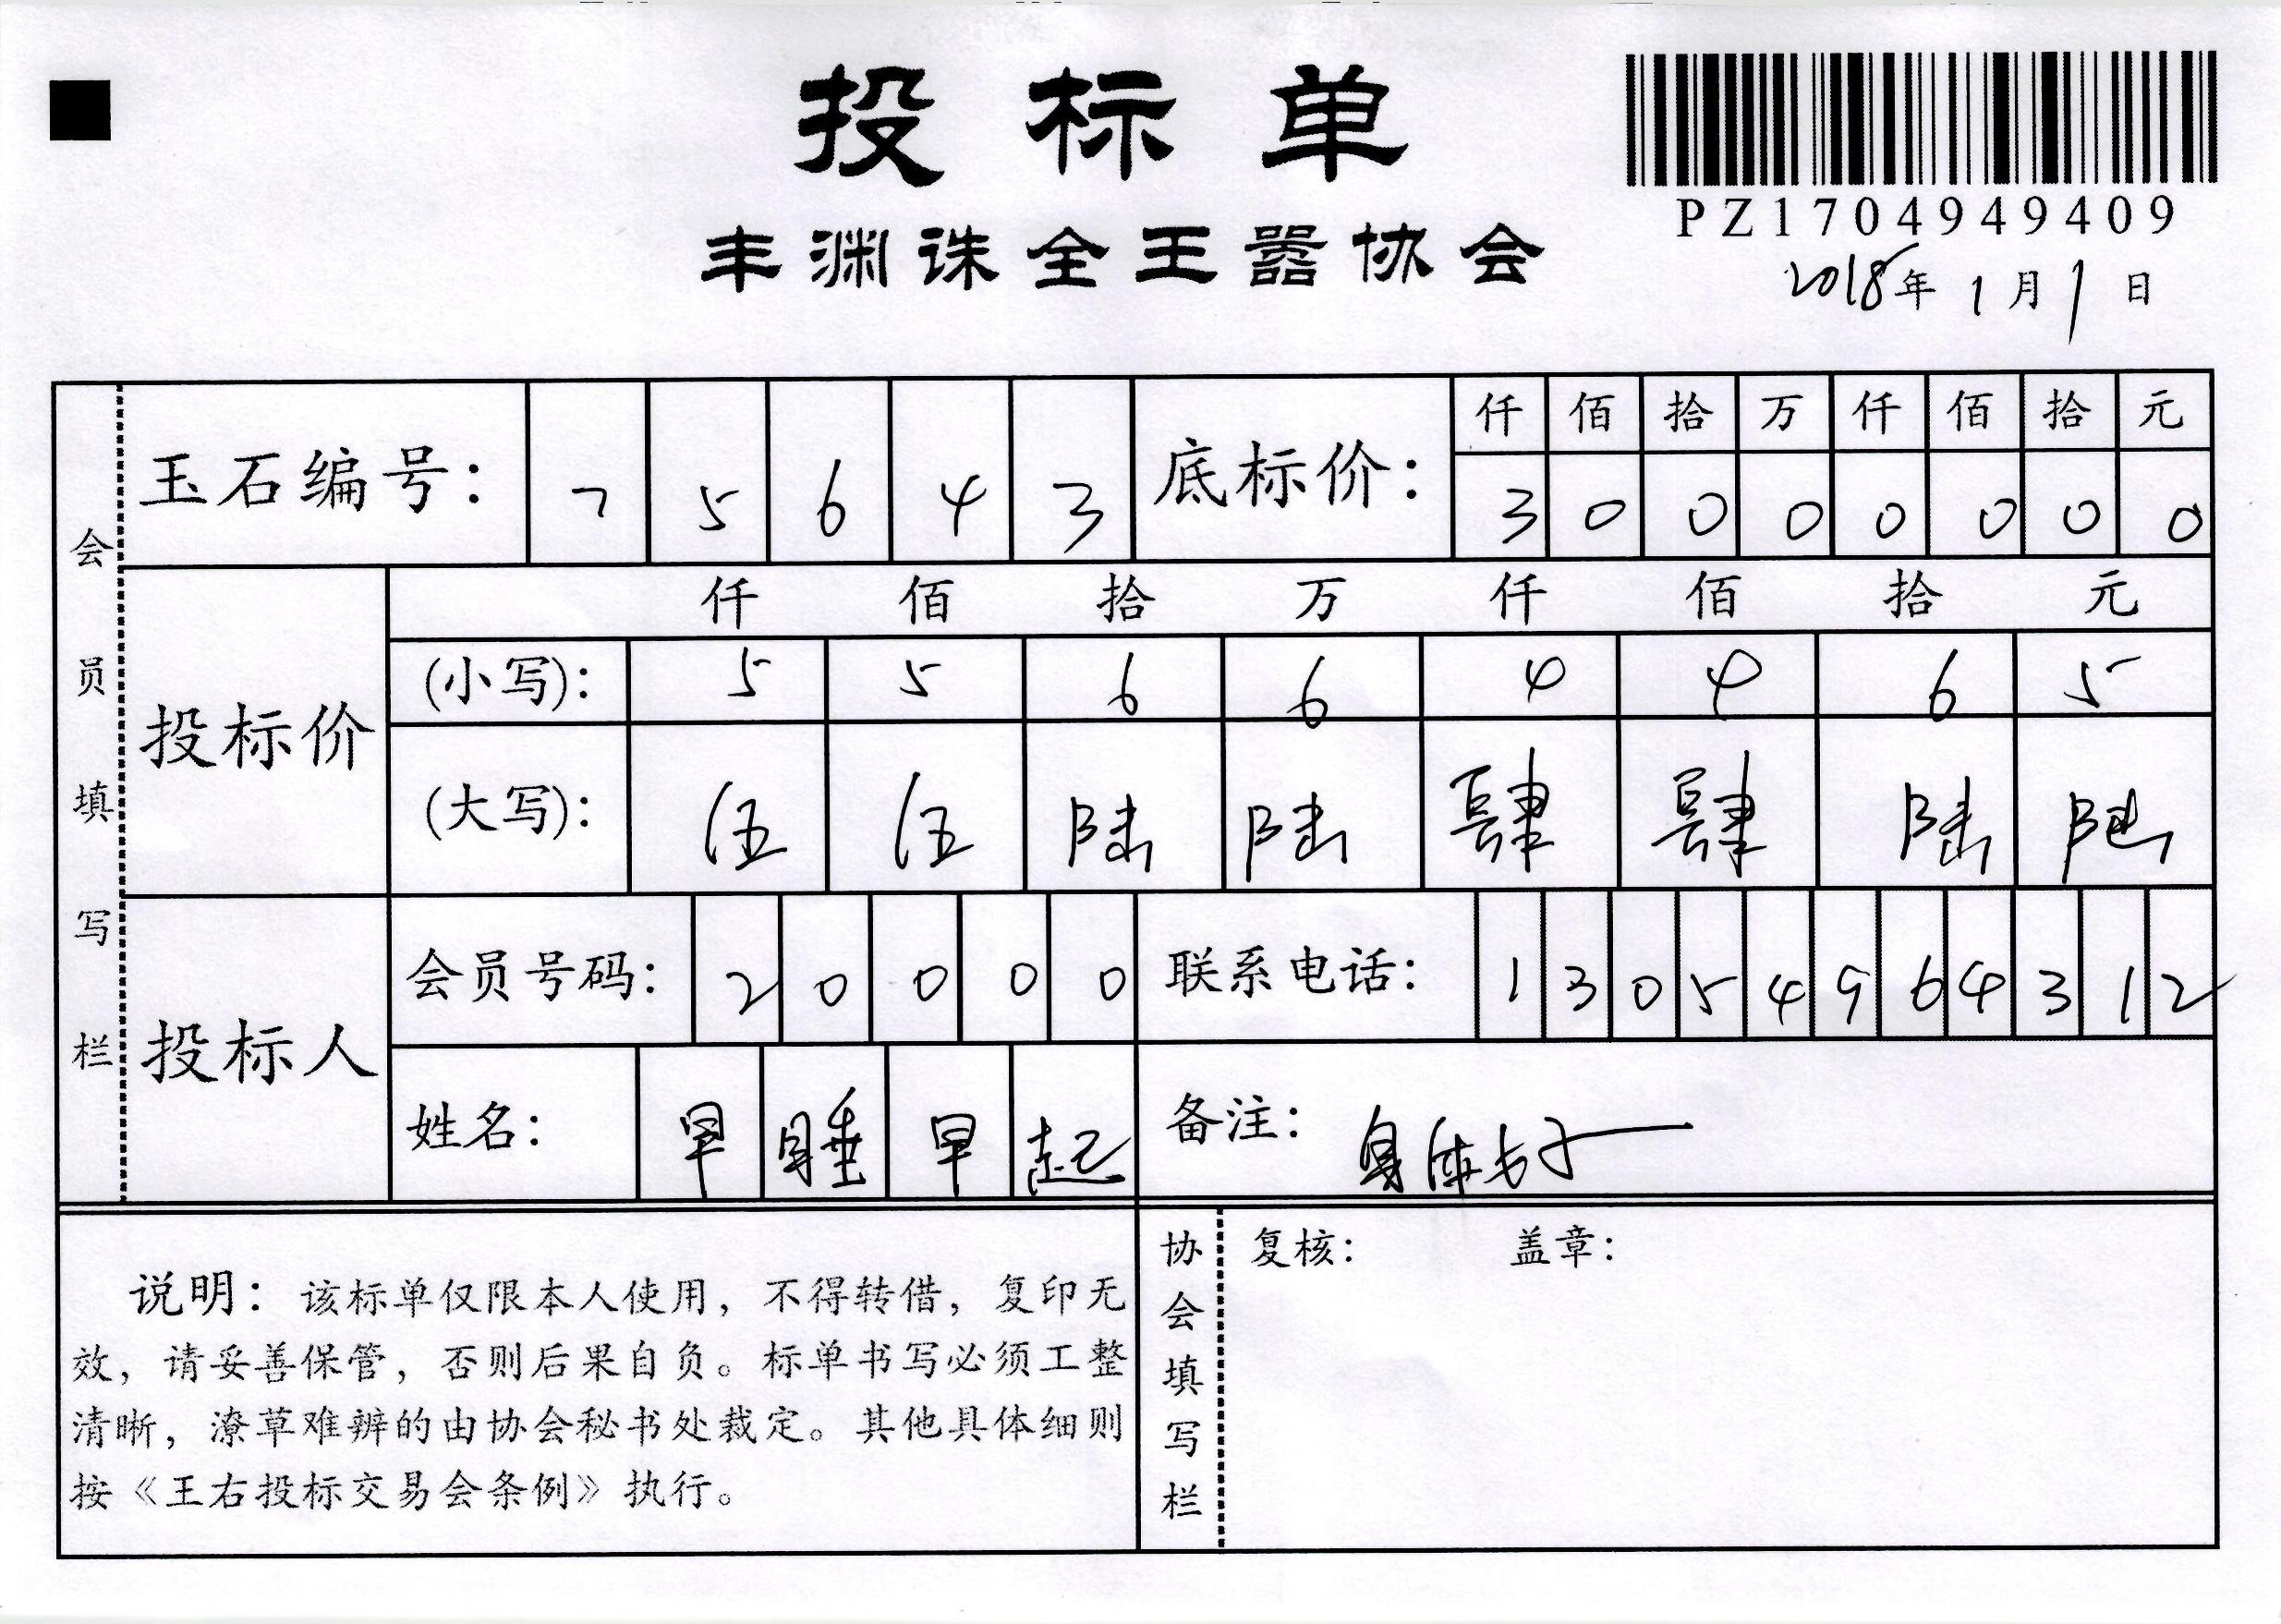 投标单
PZ1704949409
丰渊诛全王嚣协会
2018年1月1日
会员填写栏
玉石编号：75643
底标价：
仟佰拾万仟佰拾元
30000000
投标价
仟佰拾万仟佰拾元
(小写)：55664465
(大写)：伍伍陆陆肆肆陆陆
投标人
会员号码：20000
联系电话：13054964312
姓名：早睡早起
备注：身体好
说明：该标单仅限本人使用，不得转借，复印无
效，请妥善保管，否则后果自负。标单书写必须工整
清晰，潦草难辨的由协会秘书处裁定。其他具体细则
按《王右投标交易会条例》执行。
协会填写栏
复核： 盖章：